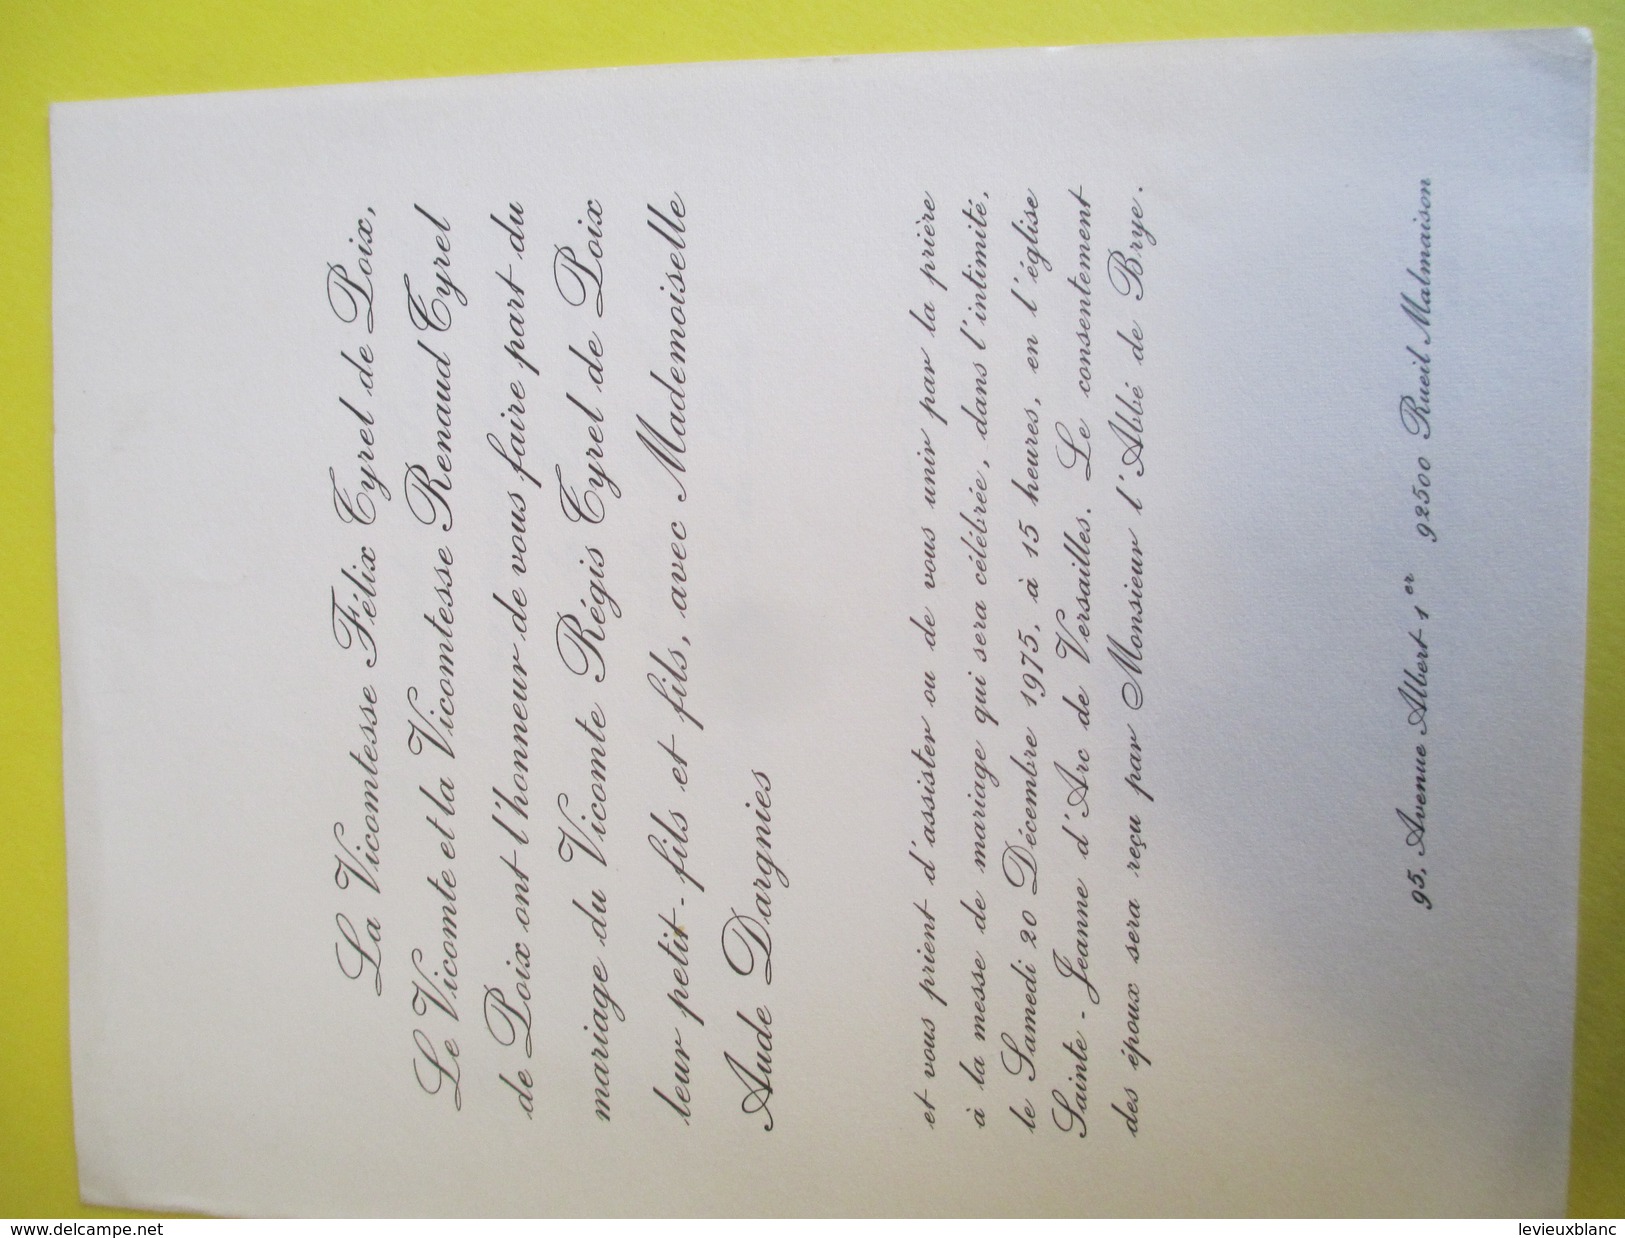 La Vicomtesse Félix Tyrel de Poix,
Le Vicomte et la Vicomtesse Renaud Tyrel
de Poix ont l'honneur de vous faire part du
mariage du Vicomte Régis Tyrel de Poix
leur petit-fils et fils, avec Mademoiselle
Aude Dargnies
et vous prient d'assister ou de vous unir par la prière
à la messe de mariage qui sera célébrée, dans l'intimité,
le Samedi 20 Décembre 1975, à 15 heures, en l'église
Sainte-Jeanne d'Arc de Versailles. Le consentement
des époux sera reçu par Monsieur l'Abbé de Brye.
95, Avenue Albert 1er 92500 Rueil Malmaison
www.delcampe.net
levieuxblanc